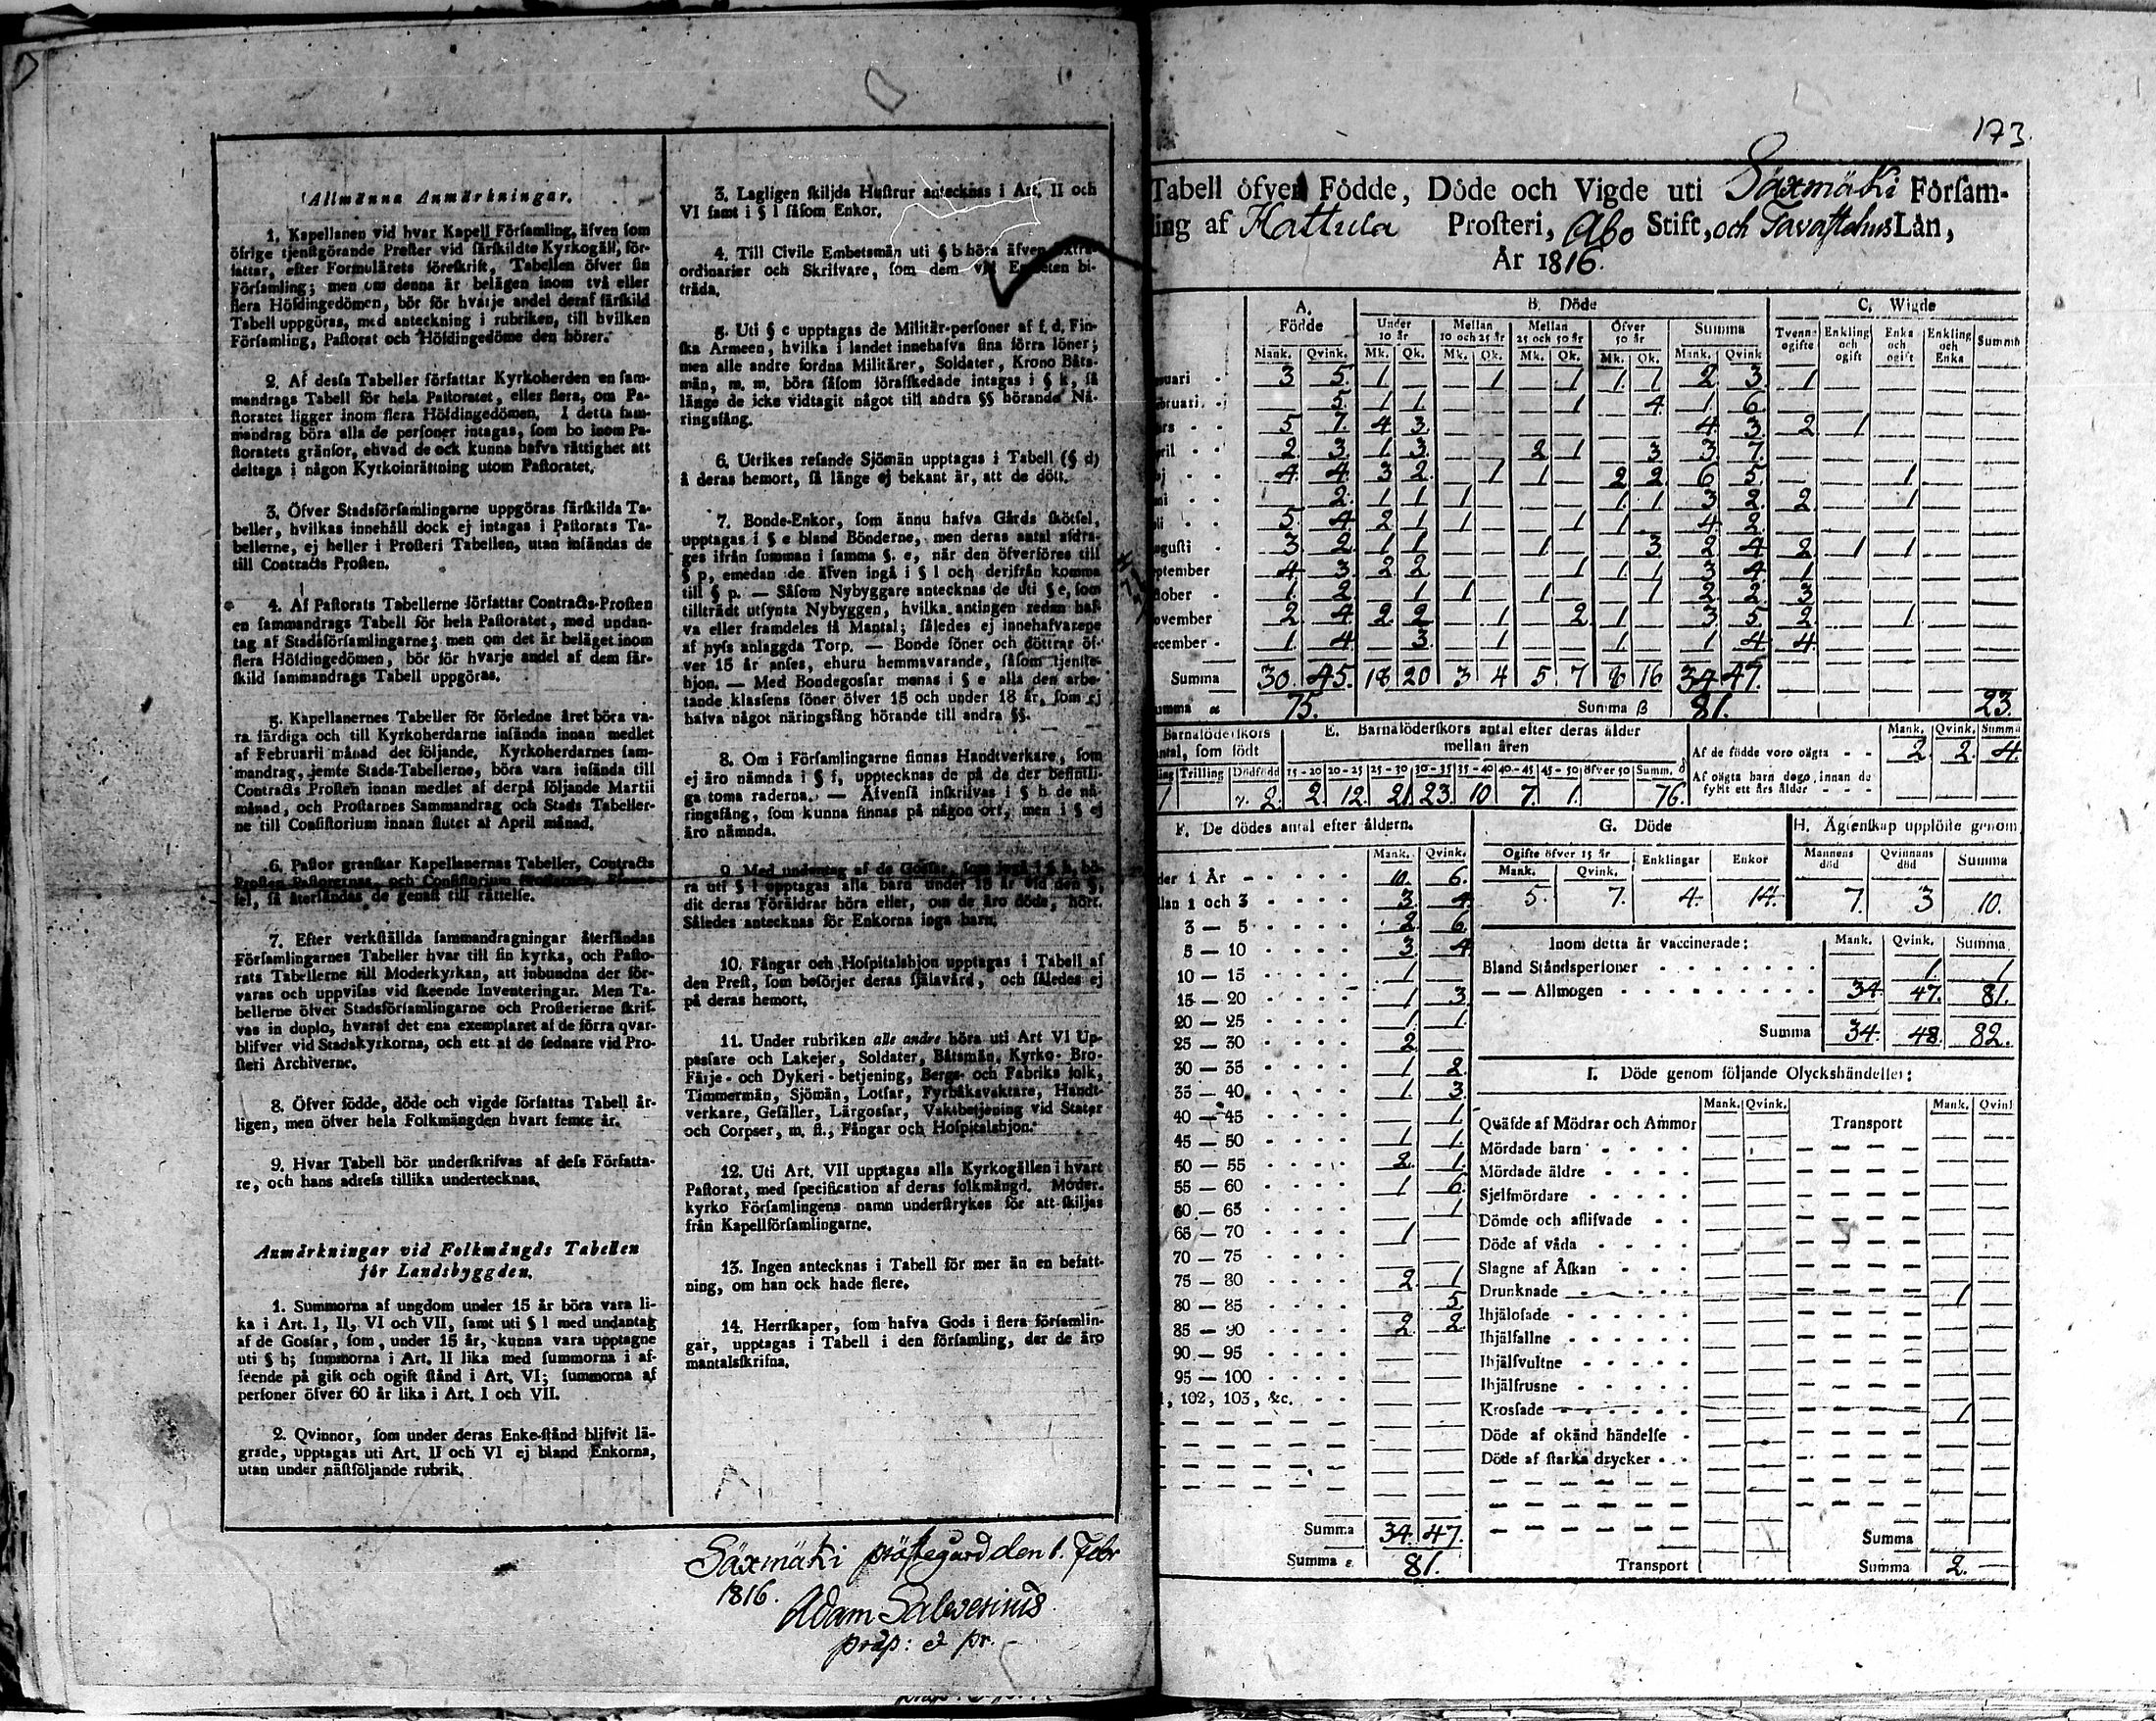 Allmänna Anmärkningar.
1. Kapellanen vid hvar Kapell Förſamling, äfven ſom
öfrige tjenſtgörande Preſter vid ſärſkildte Kyrkogäll, för-
fattar, efter Formulärets föreſkrift, Tabellen öfver ſin
Förſamling; men om denna är belägen inom två eller
flera Höfdingedömen, bör för hvarje andel deraf ſärſkild
Tabell uppgöras, med anteckning i rubriken, till hvilken
Förſamling, Paſtorat och Höfdingedöme den hörer.
2. Af desſa Tabeller författar Kyrkoherden en ſam-
mandrags Tabell för hela Paſtoratet, eller flera, om Pa-
ſtoratet ligger inom flera Höfdingedömen. I detta ſam-
mandrag böra alla de perſoner intagas, ſom bo inom Pa-
ſtoratets gränſor, ehvad de ock kunna hafva rättighet att
deltaga i någon Kyrkoinrättning utom Paſtoratet.
3. Öfver Stadsförſamlingarne uppgöras ſärſkilda Ta-
beller, hvilkas innehåll dock ej intagas i Paſtorats Ta-
bellerne, ej heller i Proſteri Tabellen, utan inſändas de
till Contracts Proſten.
4. Af Paſtorats Tabellerne författar Contracts-Proſten
en ſammandrags Tabell för hela Paſtoratet, med undan-
tag af Stadsförſamlingarne; men om det är beläget inom
flera Höfdingedömen, bör för hvarje andel af dem ſär-
ſkild ſammandrags Tabell uppgöras.
5. Kapellanernes Tabeller för förledne året böra va-
ra färdiga och till Kyrkoherdarne inſända innan medlet
af Februarii månad det följande. Kyrkoherdarnes ſam-
mandrag, jemte Stads-Tabellerne, böra vara inſända till
Contracts Proſten innan medlet af derpå följande Martii
månad, och Proſtarnes Sammandrag och Stads Tabeller-
ne till Conſiſtorium innan ſlutet af April månad.
6. Paſtor granſkar Kapellanernas Tabeller, Contracts
Proſten Paſtorernas, och Conſiſtorium Proſtarnes.
ſel, ſå återſändas de genaſt till rättelſe.
7. Efter verkſtällda ſammandragningar återſändas
Förſamlingarnes Tabeller hvar till ſin kyrka, och Paſto-
rats Tabellerne till Moderkyrkan, att inbundna der för-
varas och uppviſas vid ſkeende Inventeringar. Men Ta-
bellerne öfver Stadsförſamlingarne och Proſterierne ſkrif-
vas in duplo, hvaraf det ena exemplaret af de förra qvar-
blifver vid Stadskyrkorna, och ett af de ſednare vid Pro-
ſteri Archiverne.
8. Öfver födde, döde och vigde författas Tabell år-
ligen, men öfver hela Folkmängden hvart femte år.
9. Hvar Tabell bör underſkrifvas af deſs Författa-
re, och hans adreſs tillika undertecknas.
Anmärkningar vid Folkmängds Tabellen
för Landsbyggden.
1. Summorna af ungdom under 15 år böra vara li-
ka i Art. I, II, VI och VII, ſamt uti § l med undantag
af de Goſſar, ſom, under 15 år, kunna vara upptagne
uti § h; ſummorna i Art. II lika med ſummorna i af-
ſeende på gift och ogift ſtånd i Art. VI; ſummorna af
perſoner öfver 60 år lika i Art. I och VII.
2. Qvinnor, ſom under deras Enke-ſtånd blifvit lä-
grade, upptagas uti Art. II och VI ej bland Enkorna,
utan under näſtföljande rubrik.
3. Lagligen ſkiljda Huſtrur antecknas i Art. II och
VI ſamt i § l ſåſom Enkor.
4. Till Civile Embetsmän uti § b höra äfven extra
ordinarier och Skrifvare, ſom dem vid Embeten bi-
träda.
5. Uti § c upptagas de Militär-perſoner af f. d. Fin-
ſka Armeen, hvilka i landet innehafva ſina förra löner;
men alle andre fordna Militärer, Soldater, Krono Båts-
män, m. m. böra ſåſom förafſkedade intagas i § k, ſå
länge de icke vidtagit något till andra §§ hörande Nä-
ringsfång.
6. Utrikes reſande Sjömän upptagas i Tabell (§ d)
å deras hemort, ſå länge ej bekant är, att de dött.
7. Bonde-Enkor, ſom ännu hafva Gårds ſkötſel,
upptagas i § e bland Bönderne, men deras antal afdra-
ges ifrån ſumman i ſamma §. e, när den öfverföres till
§ p, emedan de äfven ingå i § l och derifrån komma
till § p. — Såſom Nybyggare antecknas de uti § e, ſom
tillträdt utſynta Nybyggen, hvilka antingen redan haf-
va eller framdeles få Mantal; ſåledes ej innehafvarene
af nyſs anlaggda Torp. — Bonde ſöner och döttrar öf-
ver 15 år anſes, ehuru hemmavarande, ſåſom tjenſte-
hjon. — Med Bondegosſar menas i § e alla den arbe-
tande klasſens ſöner öfver 15 och under 18 år, ſom ej
hafva något näringsfång hörande till andra §§.
8. Om i Förſamlingarne finnas Handtverkare, ſom
ej äro nämnda i § f, upptecknas de på de der befintli-
ga toma raderna. — Äfvenſå inſkrifvas i § h de nä-
ringsfång, ſom kunna finnas på någon ort, men i § ej
äro nämnda.
9. Med undantag af de Gosſar, ſom ingå i § h, bö-
ra uti § l upptagas alla barn under 15 år vid den §,
dit deras Föräldrar höra eller, om de äro döde, hört.
Således antecknas för Enkorna inga barn.
10. Fångar och Hoſpitalshjon upptagas i Tabell af
den Preſt, ſom beſörjer deras ſjälavård, och ſåledes ej
på deras hemort.
11. Under rubriken alle andre höra uti Art VI Up-
pasſare och Lakejer, Soldater, Båtsmän, Kyrko- Bro-
Färje- och Dykeri-betjening, Bergs- och Fabriks folk,
Timmermän, Sjömän, Lotſar, Fyrbåksvaktare, Handt-
verkare, Geſäller, Lärgosſar, Vaktbetjening vid Stater
och Corpſer, m. fl., Fångar och Hoſpitalshjon.
12. Uti Art. VII upptagas alla Kyrkogällen i hvart
Paſtorat, med ſpecification af deras folkmängd. Moder-
kyrko Förſamlingens namn underſtrykes för att ſkiljas
från Kapellförſamlingarne.
13. Ingen antecknas i Tabell för mer än en befatt-
ning, om han ock hade flere.
14. Herrſkaper, ſom hafva Gods i flera förſamlin-
gar, upptagas i Tabell i den förſamling, der de äro
mantalsſkrifna.
Säxmäki präſtegård den 1. Febr
1816.
Adam Salvenius
præp: & pr.
173
Tabell öfver Födde, Döde och Vigde uti Säxmäki Förſam-
ling af Hattula Proſteri, Åbo Stift, och Tavaſtehus Län,
År 1816.
A. Födde B. Döde C. Wigde
Under 10 år Mellan 10 och 25 år Mellan 25 och 50 år Öfver 50 år Summa Tvenne ogifte Enkling och ogift Enka och ogift Enkling och Enka Summa
Mank. Qvink. Mk. Qk. Mk. Qk. Mk. Qk. Mk. Qk. Mank. Qvink
uari 3 5. 1 — — 1 — 1 1 1 2 3. 1
bruari. 5. 1 1 — — — 1 — 4 1 6.
ars 5 7. 4 3 — — — — — — 4 3. 2 1
pril 2 3. 1 3 — — 2 1 — 3 3. 7.
aj 4 4. 3 2 — 1 1 — 2 2 6 5. — — 1
ni 2. 1 1 1 — — — 1 1 3 2. 2 — 1
uli 5 4. 2 1 1 — — 1 1 — 4 2.
uguſti 3 2. 1 1 — — 1 — — 3 2 4. 2 1 1
eptember 4 3. 2 2 — — — 1 1 1 3 4. 1
ktober 1 2. — 1 1 — 1 — — 1 2 2. 3
ovember 2 4. 2 2 — 1 — 2 1 — 3 5. 2 — 1
ecember 1 4. — 3 — 1 — — 1 — 1 4 4
Summa 30. 45. 18 20 3 4 5 7 8 16 34 47.
Summa α 75. Summa β 81. 23.
Barnaföderſkors antal, ſom födt
Trilling Dödfödd
1 2.
E. Barnaföderſkors antal efter deras ålder
mellan åren
15-20 20-25 25-30 30-35 35-40 40-45 45-50 öfver 50 Summ.
2. 12. 21. 23. 10 7. 1. 76.
Mank. Qvink. Summa
Af de födde voro oägta 2. 2. 4.
Af oägta barn dogo, innan de
fyllt ett års ålder
F. De dödes antal efter åldern.
Mank. Qvink.
der 1 År 10. 6.
llan 1 och 3 3. 4
3 — 5 2. 6.
5 — 10 3. 4
10 — 15 1.
15 — 20 1 3.
20 — 25 1 1.
25 — 30 2.
30 — 35 1 2.
35 — 40 1. 3.
40 — 45 1
45 — 50 1 1.
50 — 55 2. 1.
55 — 60 1 6.
60 — 65 1
65 — 70 1
70 — 75
75 — 80 2. 1
80 — 85 5.
85 — 90 2. 2
90 — 95
95 — 100
, 102, 103, &c.
Summa 34. 47.
Summa ε 81.
G. Döde
Ogifte öfver 15 år Enklingar Enkor
Mank. Qvink.
5. 7. 4. 14.
H. Ägtenſkap upplöſte genom
Mannens död Qvinnans död Summa
7. 3 10.
Inom detta år vaccinerade: Mank. Qvink. Summa
Bland Ståndsperſoner 1. 1
— — Allmogen 34. 47. 81.
Summa 34. 48. 82.
I. Döde genom följande Olyckshändelſer:
Mank. Qvink. Mank. Qvink
Qväfde af Mödrar och Ammor Transport
Mördade barn
Mördade äldre
Sjelfmördare
Dömde och aflifvade
Döde af våda
Slagne af Åſkan
Drunknade 1
Ihjälofade
Ihjälfallne
Ihjälſvultne
Ihjälfrusne
Krosſade 1
Döde af okänd händelſe
Döde af ſtarka drycker
Summa
Transport Summa 2.